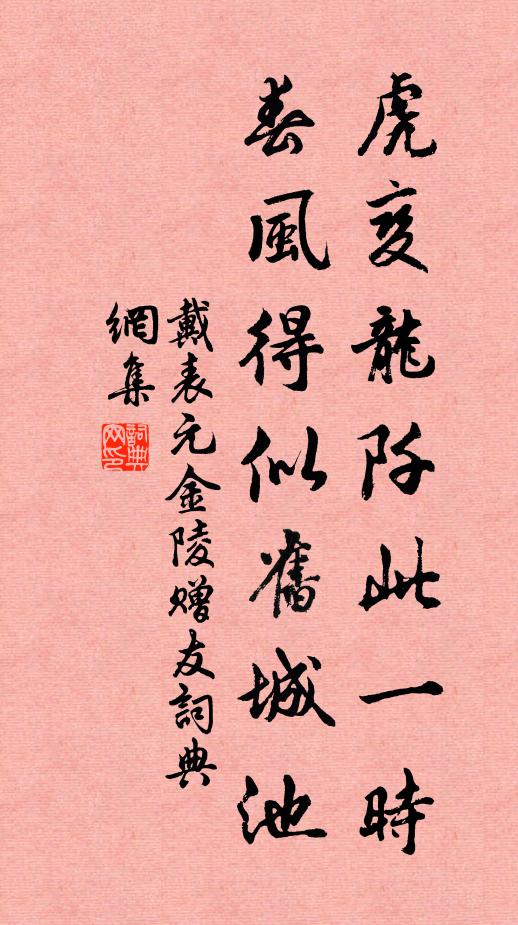 虎變龍阡此一時
春風得似舊城池
戴表元金陵贈友詞典
網集
詞典
网印